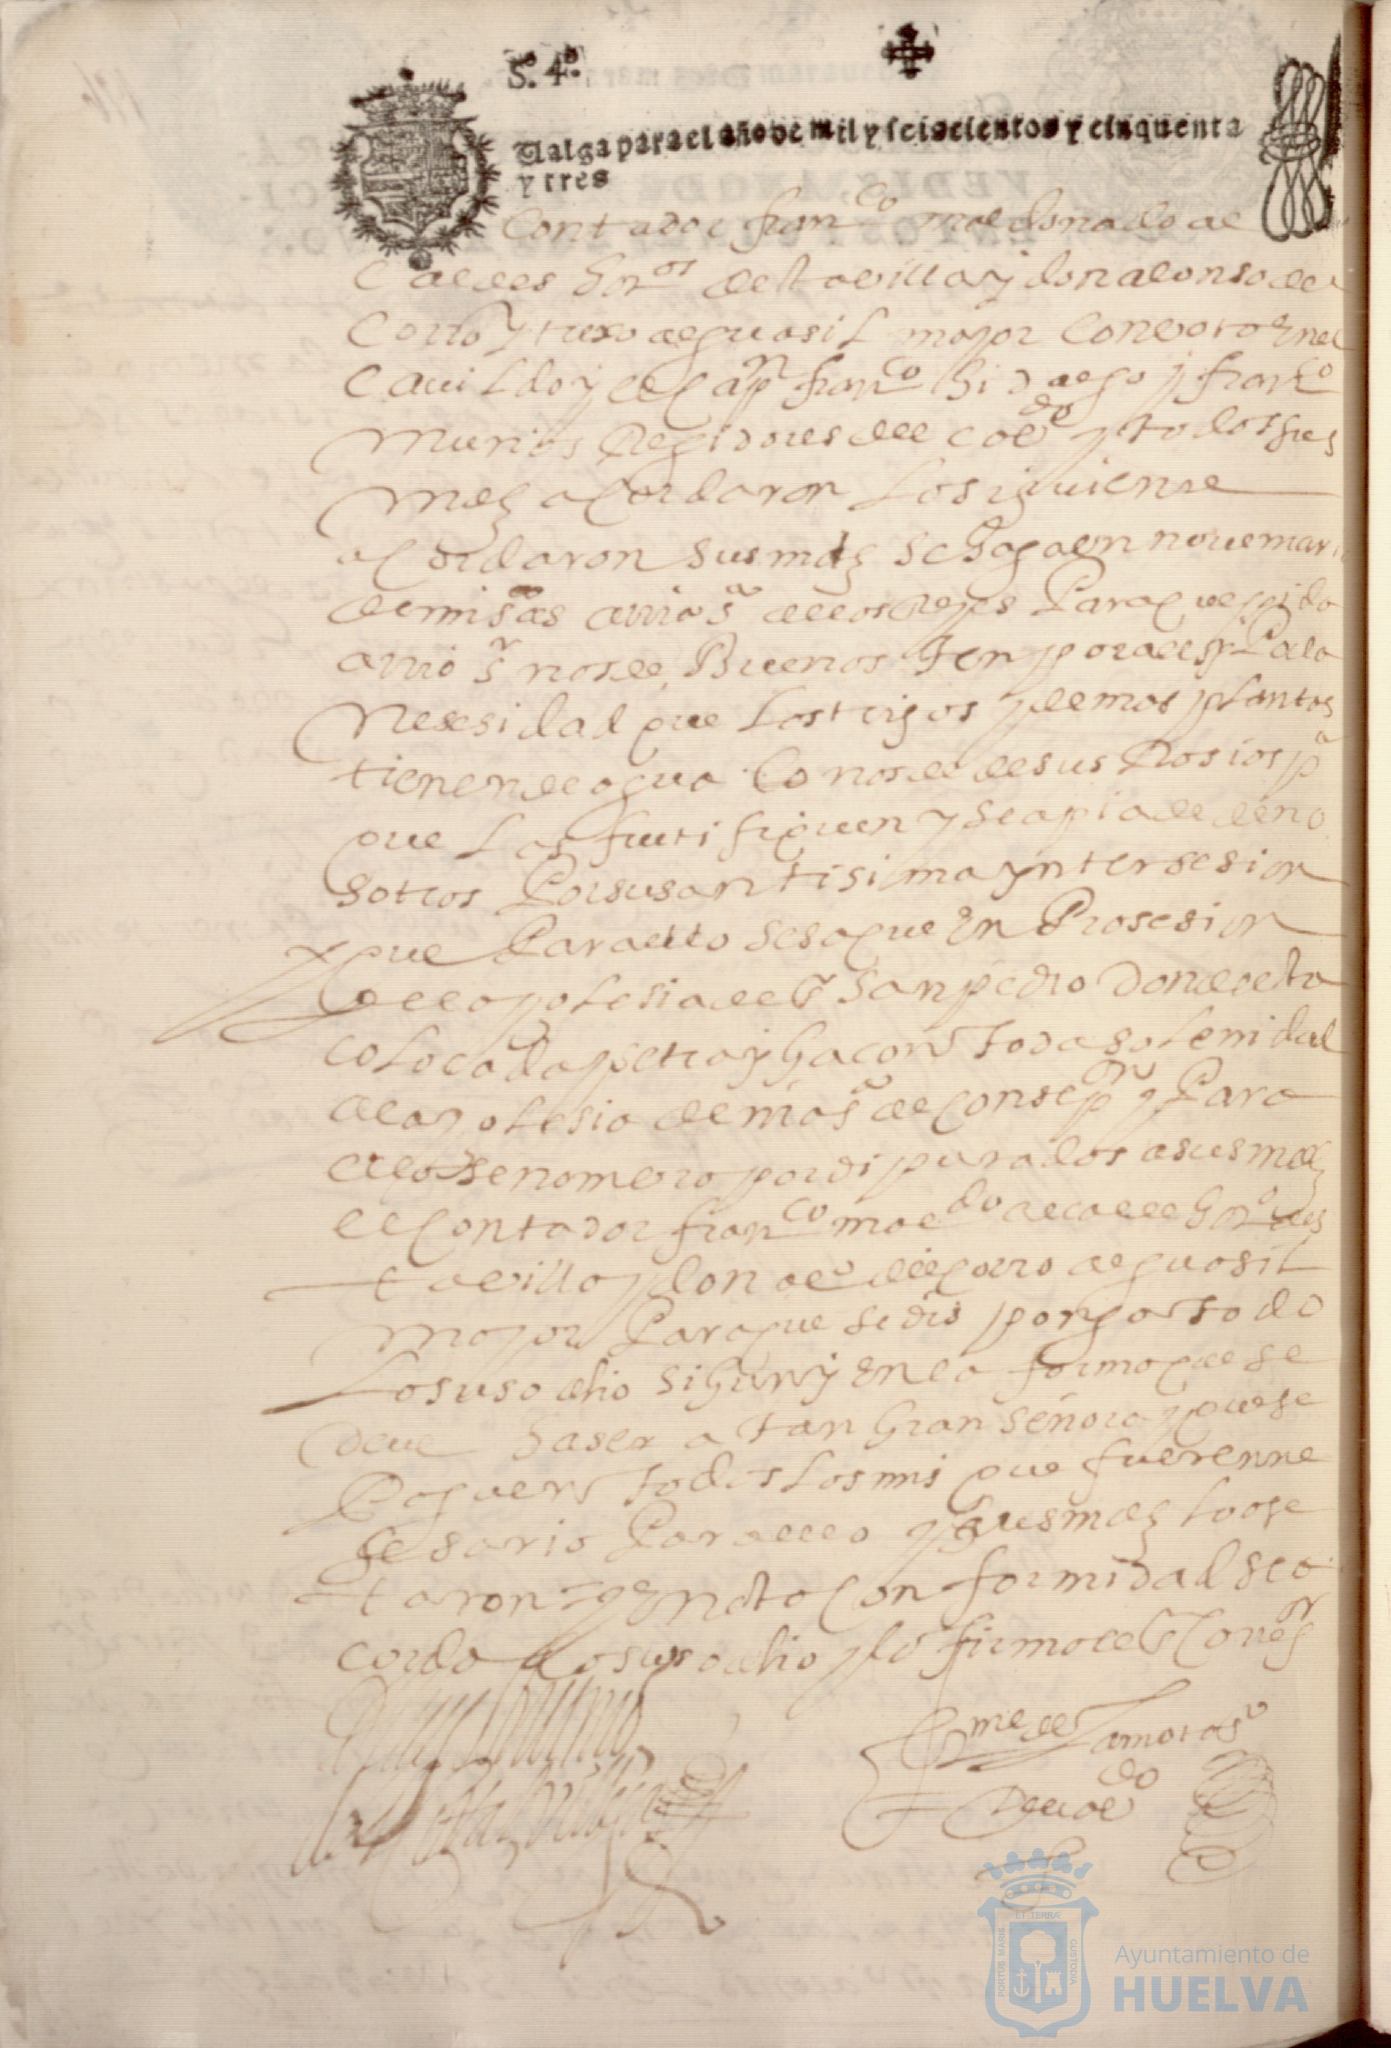 S.º 4.º
Valga para el año de mil y seiscientos y cinquenta
y tres
Contador franco maldonado al
Caldes hornos desta villa y don alonso del
Corro y truxo alguasil mayor con voto en el
Cavildo y el Capn franco hidalgo y franco
Muriel Regidores del cavdo y todos sus
mds acordaron lo siguiente
acordaron sus mds se hagaen nuevemari
de misas a nra sa de los Reyes Para que pida
a nro sr nos de Buenos Temporales Por la
Nesesidad que los trigos y demas plantas
tienen de agua lo nos de de sus Rosios pa
que las frutifiquen y se apiade de no
sotros Por su santisima yntersesion
y que Para ello se saque en Prosesion
de la yglesia del sr san pedro donde esta
colocada y se trayga con toda solenidad
a la yglesia de nra sa de Consepon y Para
ello se nombro por diputados a sus mds
el Contador franco maldo alcalde horno des
ta villa y don alo del corro alguasil
mayor Para que se dis pongan todo
lo suso dho sigun y en la forma que se
deve haser a tan gran señora y que se
Paguen todos los mrs que fueren ne
sesario Para ello y sus mds lo ose
taron = y en esta conformidad se a
cordo lo suso dho y lo firmo el sr Corregor
me de Zamora so
del cavdo
PORTUS MARIS
ET TERRÆ
CUSTODIA
Ayuntamiento de
HUELVA